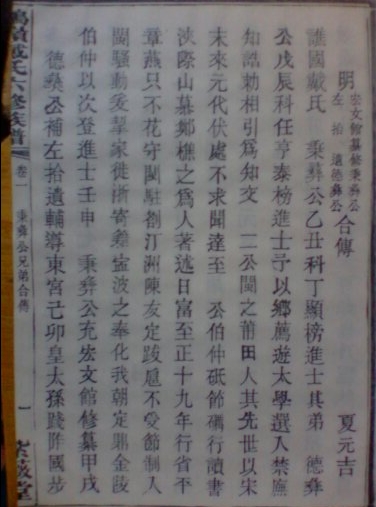 明 宏文館纂修秉彝公
左拾遺德彝公 合傳 夏元吉
譙國戴氏 秉彝公乙丑科丁顯榜進士其弟 德彝
公戊辰科任亨泰榜進士予以鄉薦遊太學選入禁廡
知誥勅相引爲知交 二公閩之莆田人其先世以宋
末來元代伏處不求聞達至 公伯仲砥節礪行讀書
浹際山慕鄭樵之爲人著述日富至正十九年行省平
章燕只不花守閩駐劄汀洲陳友定跋扈不受節制入
閩騷動爰挈家徙浙寄籍寧波之奉化我朝定鼎金陵
伯仲以次登進士壬申 秉彝公充宏文館修纂甲戌
德彝公補左拾遺輔導東宮己卯皇太孫踐阼國步
戴氏六修族譜 卷一 秉彝公兄弟合傳 一 紫薇堂